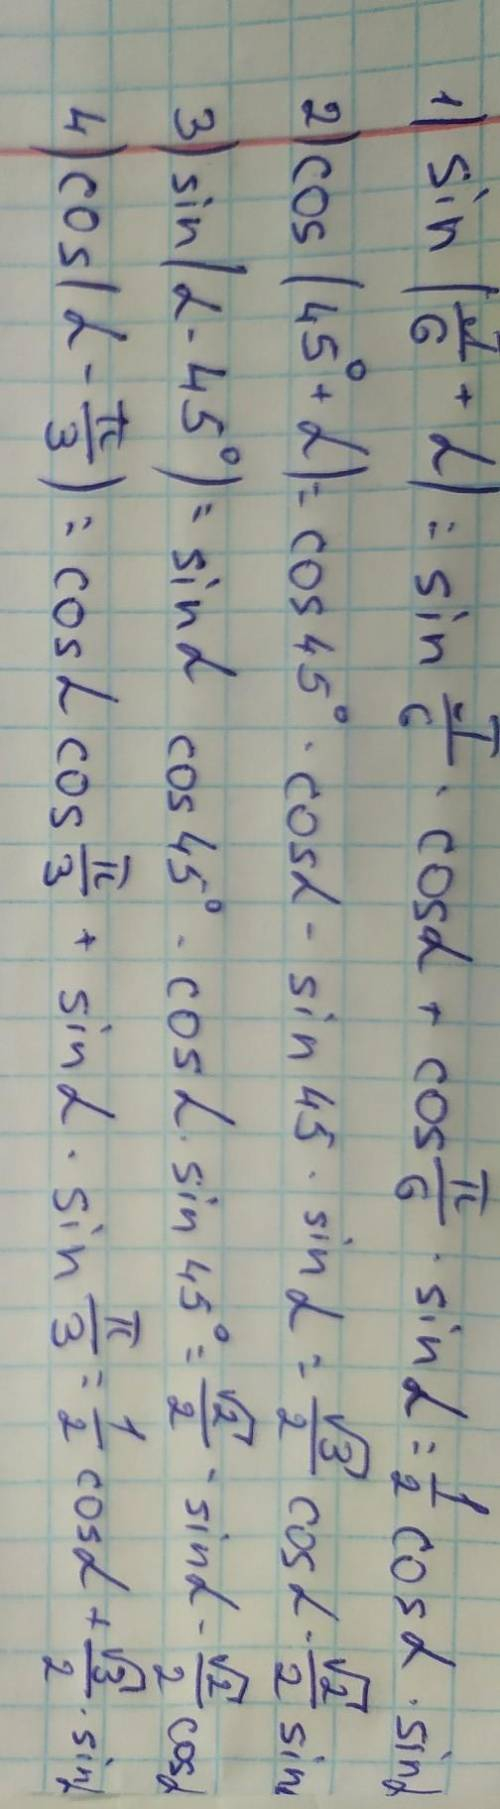 1) sin(π/6 + α) = sin π/6 · cosα + cos π/6 · sinα = 1/2 cosα · sinα
2) cos(45° + α) = cos45° · cosα - sin 45 · sinα = √3/2 cosα · √2/2 sin
3) sin(α - 45°) = sinα cos45° - cosα · sin 45° = √2/2 · sinα - √2/2 cosα
4) cos(α - π/3) = cosα cos π/3 + sinα · sin π/3 = 1/2 cosα + √3/2 · sinα